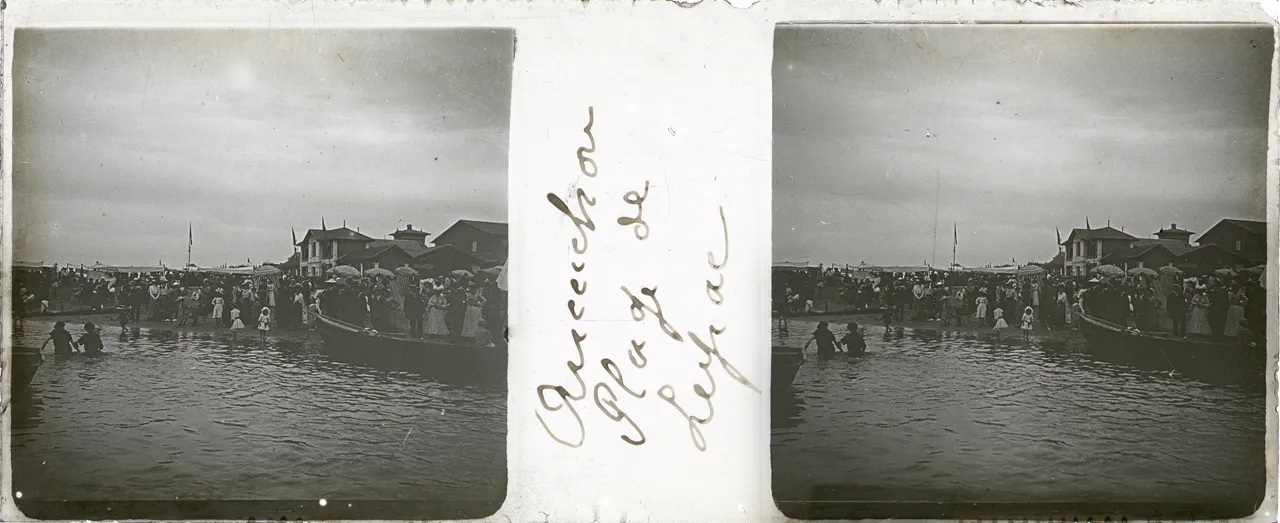 Arcachon
Plage de
Leyrac